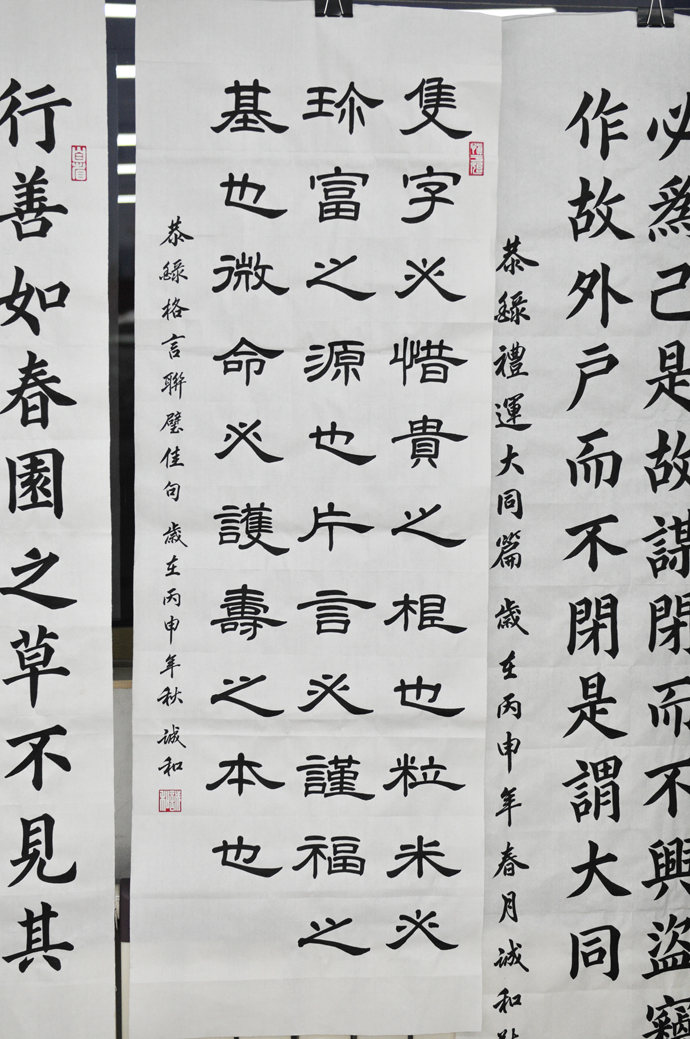 必爲己是故謀閉而不興盜竊
作故外戶而不閉是謂大同
恭錄禮運大同篇歲在丙申年春月誠和
隻字必惜貴之根也粒米必
珎富之源也片言必謹福之
基也微命必護壽之本也
恭錄格言聯璧佳句歲在丙申年秋誠和
行善如春園之草不見其